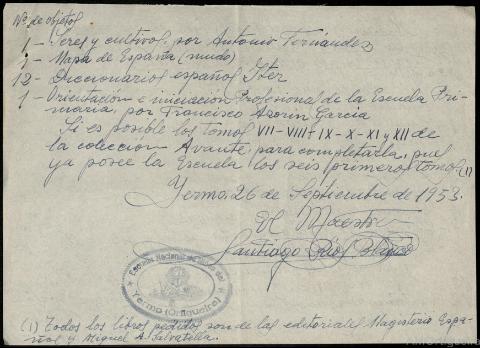 Nº de objetos
1 - Seres y cultivos por Antonio Fernández
1 - Mapa de España (mudo)
12 - Diccionarios español Iter
1 - Orientación e iniciación Profesional de la Escuela Pri-
maria, por Francisco Azorín García
Si es posible los tomos VII - VIII - IX - X - XI y XII de
la colección Avante para completarla, pues
ya posee la Escuela los seis primeros tomos (1)
Yermo, 26 de Septiembre de 1953.
El Maestro
Santiago
Escuela Nacional de
Yermo (Ortigueira)
(1) Todos los libros pedidos son de las editoriales Magisterio Espa-
ñol y Miguel A. Salvatella.